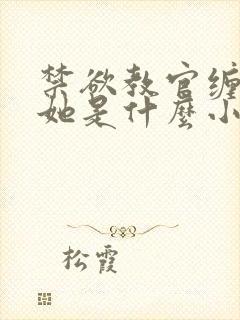 禁欲教官缠
她是什麼小
松霞